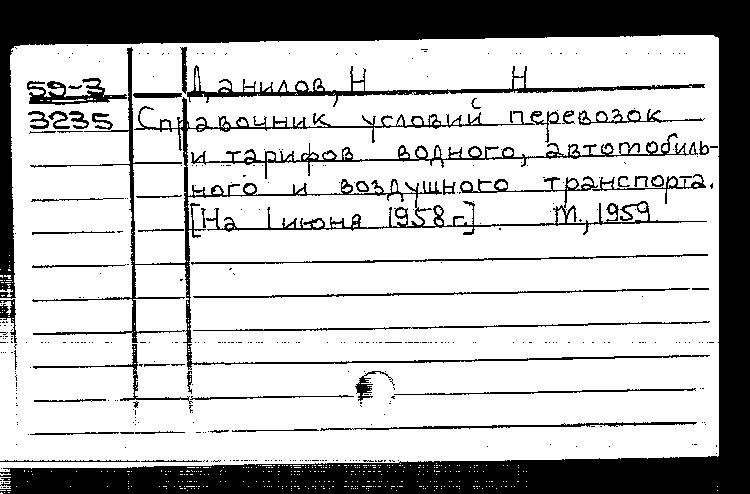 59-3 Данилов, Н Н
3235 Справочник условий перевозок
и тарифов водного, автомобиль-
ного и воздушного транспорта.
[На 1 июня 1958 г.] М., 1959